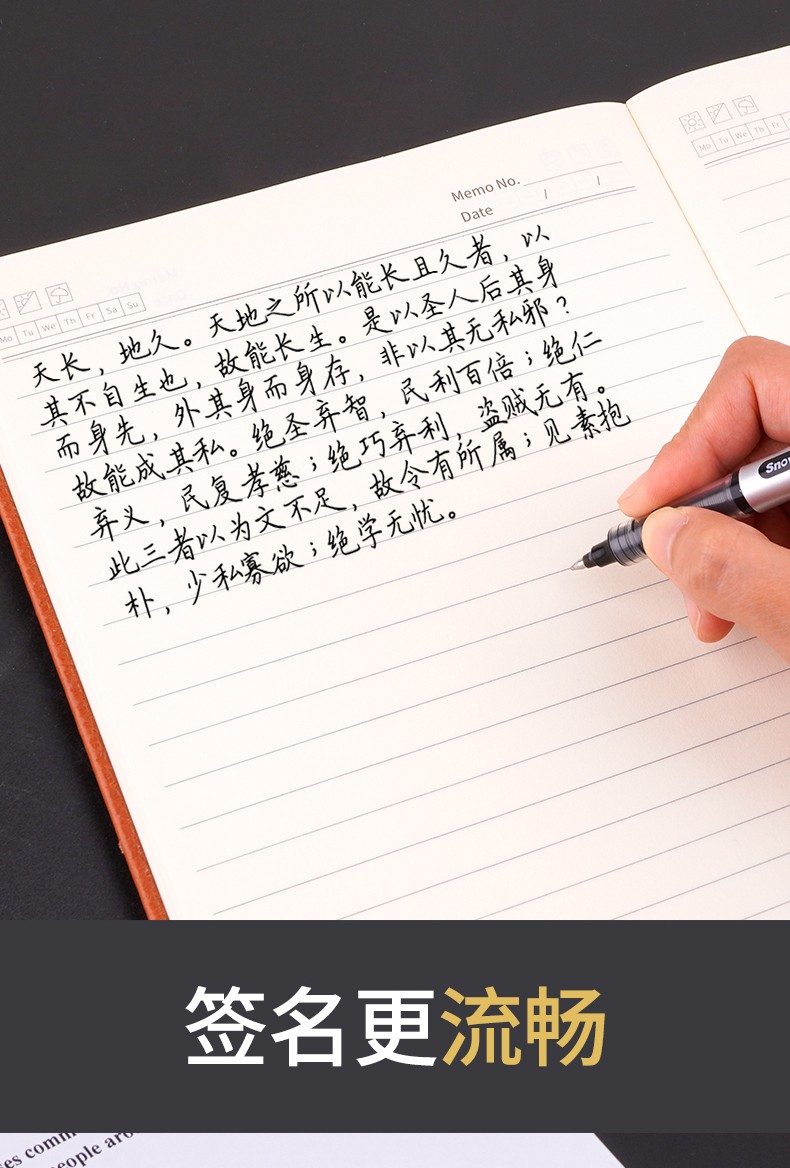 Memo No.
Date / /
Mo Tu We Th Fr Sa Su
Mo Tu We Th Fr
天长，地久。天地之所以能长且久者，以
其不自生也，故能长生。是以圣人后其身
而身先，外其身而身存，非以其无私邪？
故能成其私。绝圣弃智，民利百倍；绝仁
弃义，民复孝慈；绝巧弃利，盗贼无有。
此三者以为文不足，故令有所属；见素抱
朴，少私寡欲；绝学无忧。
Snow
签名更流畅
people